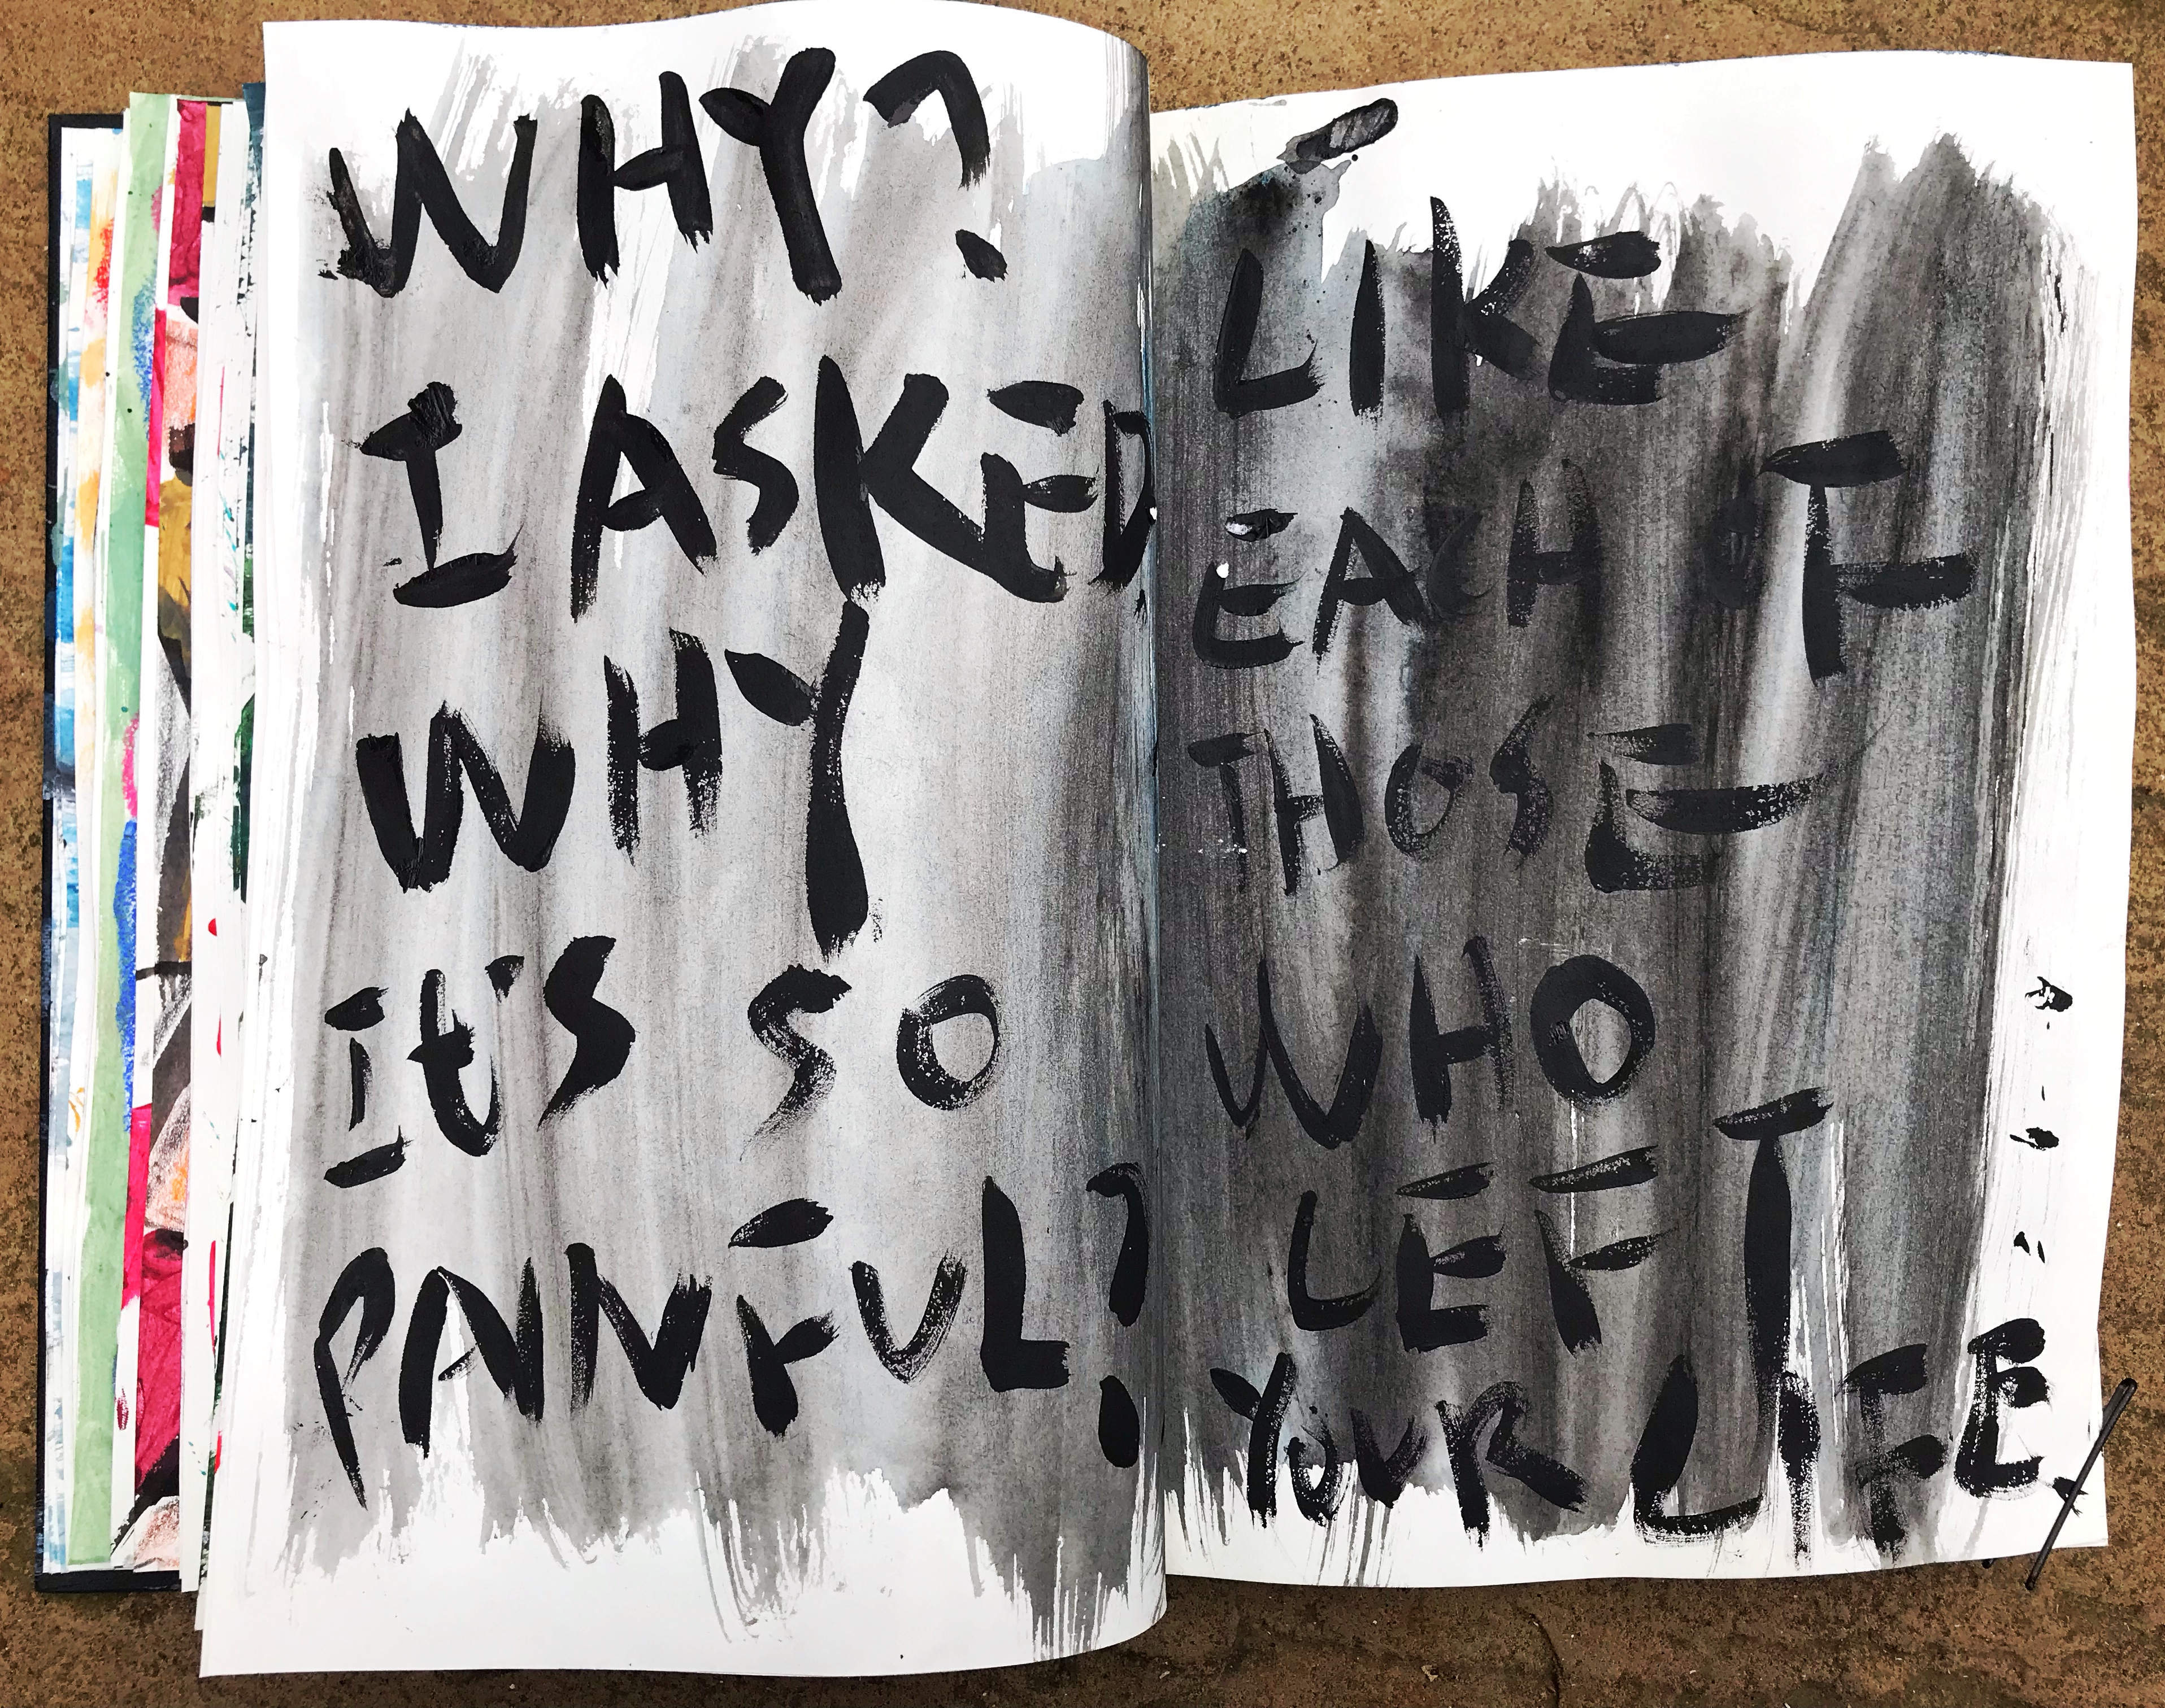 WHY?
I ASKED
WHY
It'S SO
PAINFUL?
LIKE
EACH OF
THOSE
WHO
LEFT
YOUR LIFE